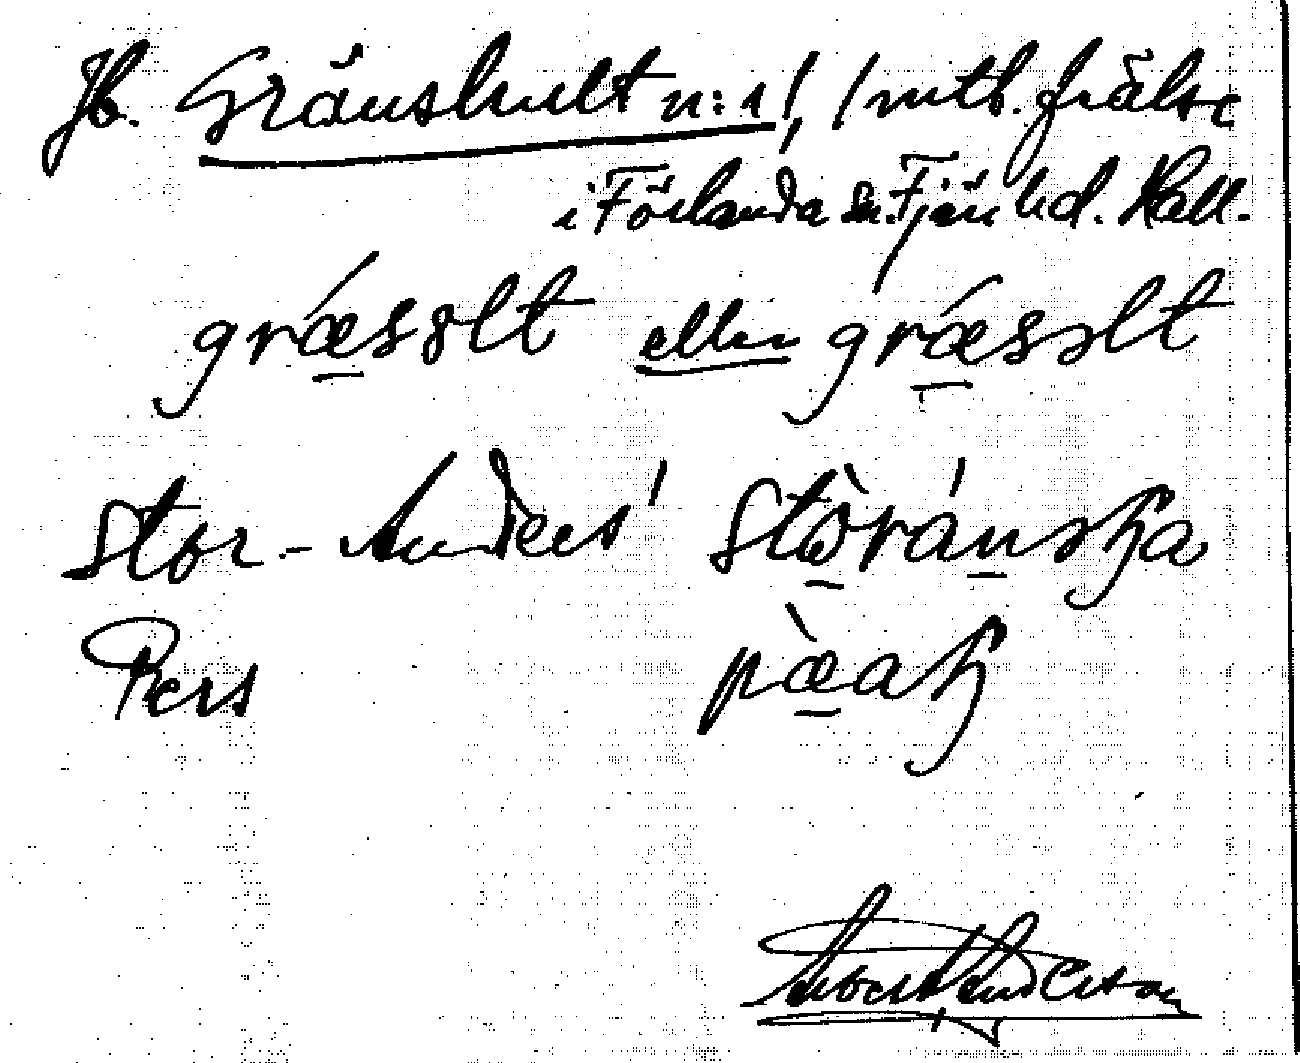 Jb. Gränshult n:1, 1 mtl. frälse
i Förlanda sn. Fjäre hd. Hall.
græsslt eller græsslt
Stor-Anders' stòránsʒa
Pers pæ̀aʒ
Albert Anderson